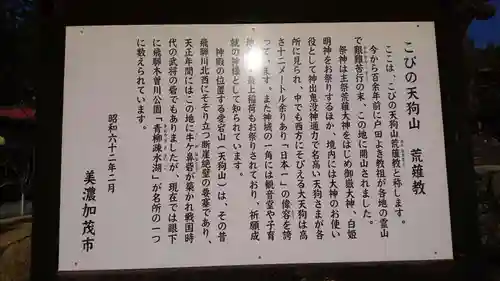 こびの天狗山　荒薙教
ここは、こびの天狗山荒薙教と称します。
今から百余年前に戸田よき教祖が各地の霊山
で艱難苦行の末、この地に開山されました。
祭神は主祭荒薙大神をはじめ御嶽大神、白姫
明神をお祭りするほか、境内には大神のお使い
役として神出鬼没神通力で名高い天狗さまが各
所に見られ、中でも西方にそびえる大天狗は高
さ十二メートル余りあり「日本一」の偉容を誇
っています。また神域の一角には観音堂や子育
最上稲荷もお祭りされており、祈願成
就の神様として知られています。
神殿の位置する愛宕山（天狗山）は、その昔
飛騨川北西にそそり立つ断崖絶壁の要塞であり、
天正年間にはこの地に牛ケ鼻砦が築かれ戦国時
代の武将の砦でもありましたが、現在では眼下
に飛騨木曽川公園「青柳疎水湖」が名所の一つ
に数えられています。
昭和六十二年二月
美濃加茂市